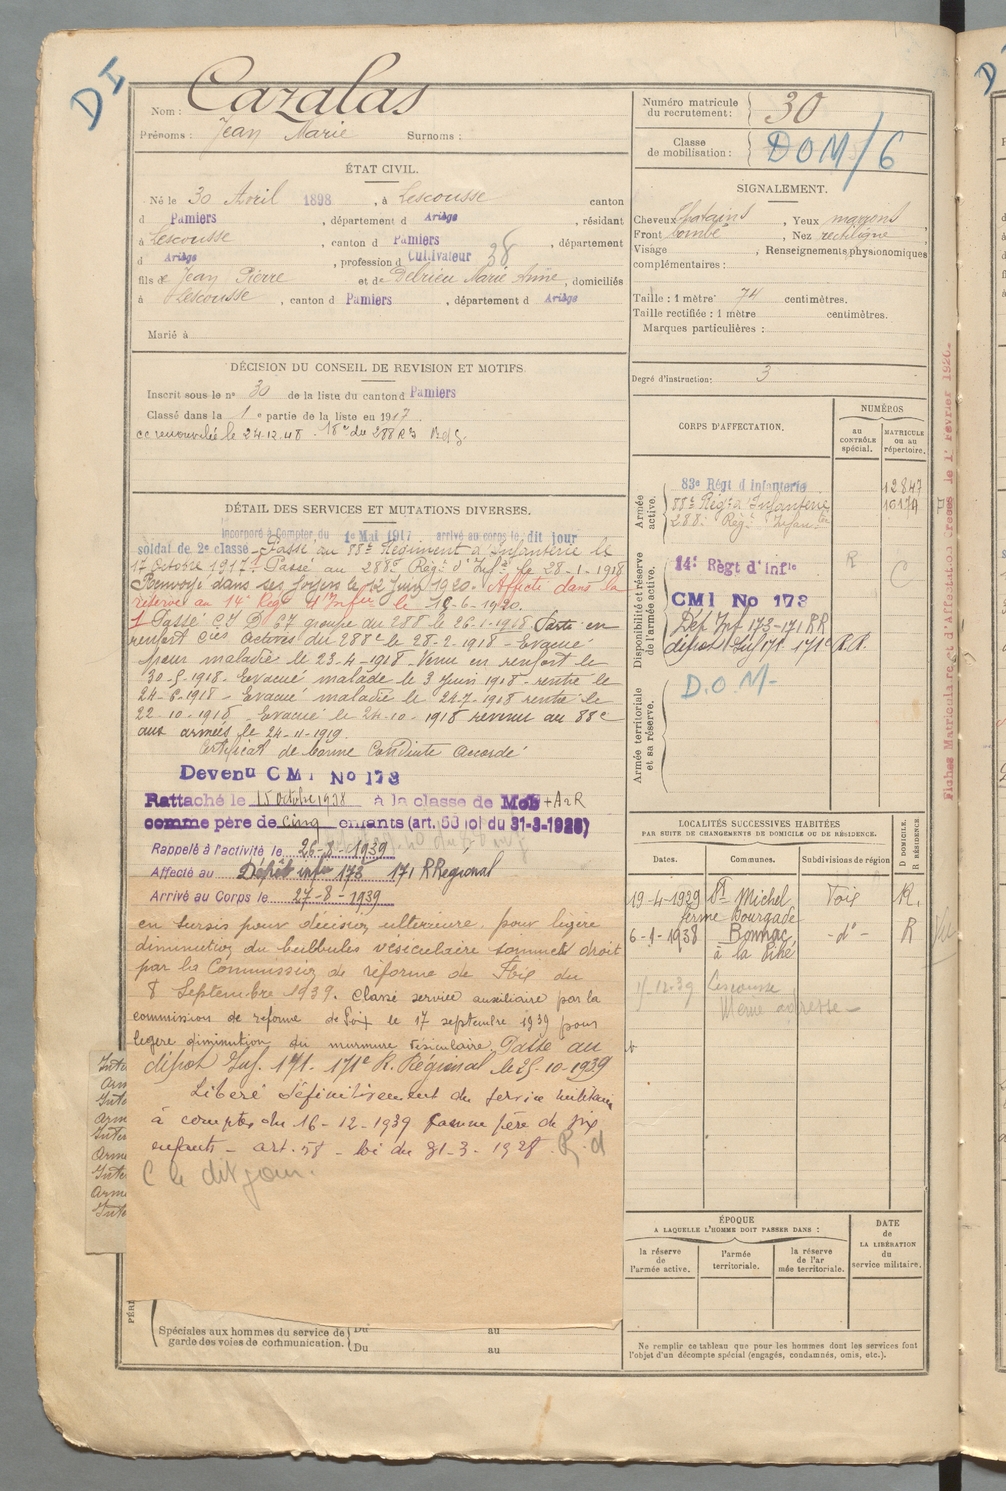 DI
Nom : Cazalas
Prénoms : Jean Marie Surnoms :
Numéro matricule du recrutement : 30
Classe de mobilisation : DOM/6
ÉTAT CIVIL.
Né le 30 Avril 1898, à Lescousse canton
d Pamiers, département d Ariège, résidant
à Lescousse, canton d Pamiers, département
d Ariège, profession d Cultivateur 38
fils de Jean Pierre et de Delrieu Marie Anne, domiciliés
à Lescousse, canton d Pamiers, département d Ariège
Marié à
SIGNALEMENT.
Cheveux chatains, Yeux marrons
Front bombé, Nez rectiligne
Visage , Renseignements physionomiques
complémentaires :
Taille : 1 mètre 74 centimètres.
Taille rectifiée : 1 mètre centimètres.
Marques particulières :
Degré d'instruction : 3
DÉCISION DU CONSEIL DE REVISION ET MOTIFS.
Inscrit sous le n° 30 de la liste du canton d Pamiers
Classé dans la 1e partie de la liste en 1917
cc renouvelée le 24.12.18
DÉTAIL DES SERVICES ET MUTATIONS DIVERSES.
Incorporé à compter du 1e Mai 1917 arrivé au corps le dit jour
soldat de 2e classe. Passé au 88e Régiment d'Infanterie le
17 Octobre 1917. Passé au 288e Régt d'Infie le 28-1-1918
Renvoyé dans ses foyers le 12 Juin 1920. Affecté dans la
réserve au 14e Regt d'Infie le 18-6-1920.
1 Passé groupe du 288 le 26-1-1918 Parti en
renfort Cies actives du 288e le 28-2-1918 - Evacué
pour maladie le 23-4-1918 - Venu en renfort le
30-5-1918. Evacué malade le 3 Juin 1918 - rentré le
24-6-1918 - Evacué maladie le 24-7-1918 rentré le
22-10-1918 - Evacué le 24-10-1918 revenu au 88e
aux armées le 24-11-1919.
Certificat de bonne Conduite accordé
Devenu CMI No 173
Rattaché le 15 octobre 1938 à la classe de Mob + A2R
comme père de cinq enfants (art. 58 loi du 31-3-1928)
Rappelé à l'activité le 26-8-1939
Affecté au Dépôt infie 173 171 R Régional
Arrivé au Corps le 27-8-1939
en sursis pour décision ultérieure. pour légère
diminution du sommet droit
par la Commission de réforme de Foix du
8 Septembre 1939. Classé service auxiliaire par la
commission de reforme de Foix le 17 septembre 1939 pour
legere diminution du murmure vésiculaire. Passé au
dépot Inf. 171. 171e R. Régional le 25-10-1939
Libéré définitivement du service militaire
à compter du 16-12-1939 comme père de six
enfants - art. 58 - loi du 31-3-1928. R. d
C le dit jour.
CORPS D'AFFECTATION.
NUMÉROS
au contrôle spécial.
MATRICULE ou au répertoire.
Armée active.
83e Régt d'Infanterie 12847
88e Régt d'Infanterie 10174
288e Régt Infanterie
Disponibilité et réserve de l'armée active.
14e Règt d'Infie R C
CMI No 173
Dép Inf 173-171 RR
dépot Inf 171 171e R.R.
Armée territoriale et sa réserve.
D.O.M-
LOCALITÉS SUCCESSIVES HABITÉES
PAR SUITE DE CHANGEMENTS DE DOMICILE OU DE RÉSIDENCE.
D DOMICILE. R RÉSIDENCE.
Dates. Communes. Subdivisions de région
19-4-1929 St Michel Foix R.
ferme Bourgade
6-1-1938 Bonnac - do - R
à la
-12-39 Lescousse
Même adresse -
ÉPOQUE
A LAQUELLE L'HOMME DOIT PASSER DANS :
la réserve de l'armée active.
l'armée territoriale.
la réserve de l'armée territoriale.
DATE de LA LIBÉRATION du service militaire.
Spéciales aux hommes du service de garde des voies de communication.
Du au
Du au
Ne remplir ce tableau que pour les hommes dont les services font
l'objet d'un décompte spécial (engagés, condamnés, omis, etc.).
Fiches Matricule rect d'Affectation créées le 1er Février 1926.